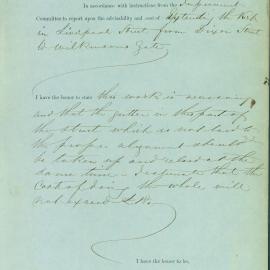 In accordance with instructions from the Improvement
Committee to report upon the advisability and cost of extending the kerb
in Liverpool Street from Dixon Street
to Wilkinsons Gate
I have the honor to state this work is necessary
and that the gutter in this part of
the street which is not laid to
the proper alignment should
be taken up and relaid at the
same time – I estimate that the
cost of doing the whole will
not exceed
I have the honor to be,